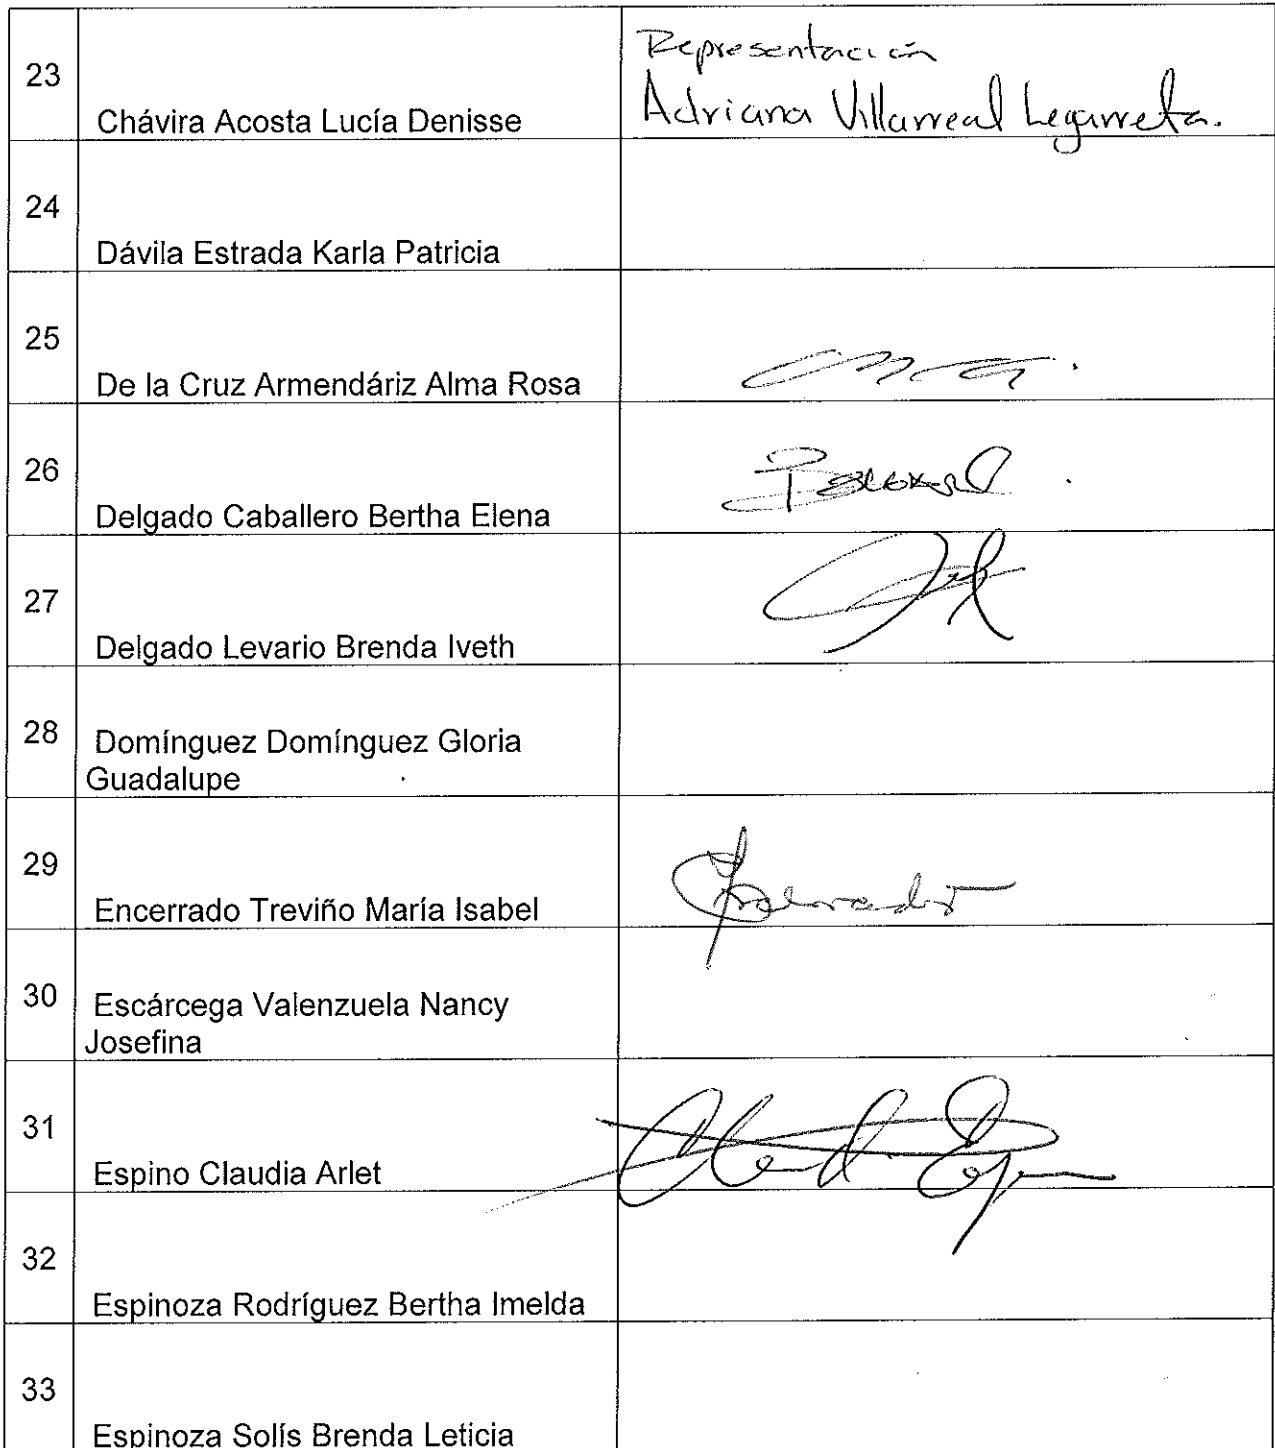 23
Chávira Acosta Lucía Denisse
Representación
Adriana Villarreal Legarreta.
24
Dávila Estrada Karla Patricia
25
De la Cruz Armendáriz Alma Rosa
26
Delgado Caballero Bertha Elena
27
Delgado Levario Brenda Iveth
28
Domínguez Domínguez Gloria
Guadalupe
29
Encerrado Treviño María Isabel
30
Escárcega Valenzuela Nancy
Josefina
31
Espino Claudia Arlet
32
Espinoza Rodríguez Bertha Imelda
33
Espinoza Solís Brenda Leticia